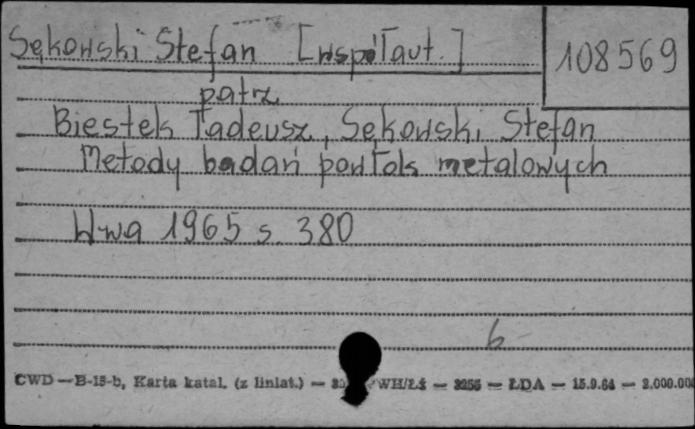 Sękowski Stefan [współaut.]
108569
patrz
Biestek Tadeusz, Sękowski Stefan
Metody badań powłok metalowych
Wwa 1965 s. 380
b
CWD — B-15-b, Karta katal. (z liniat.) — WH/Łś — 3256 — ŁDA — 15.9.64 — 2.000.000